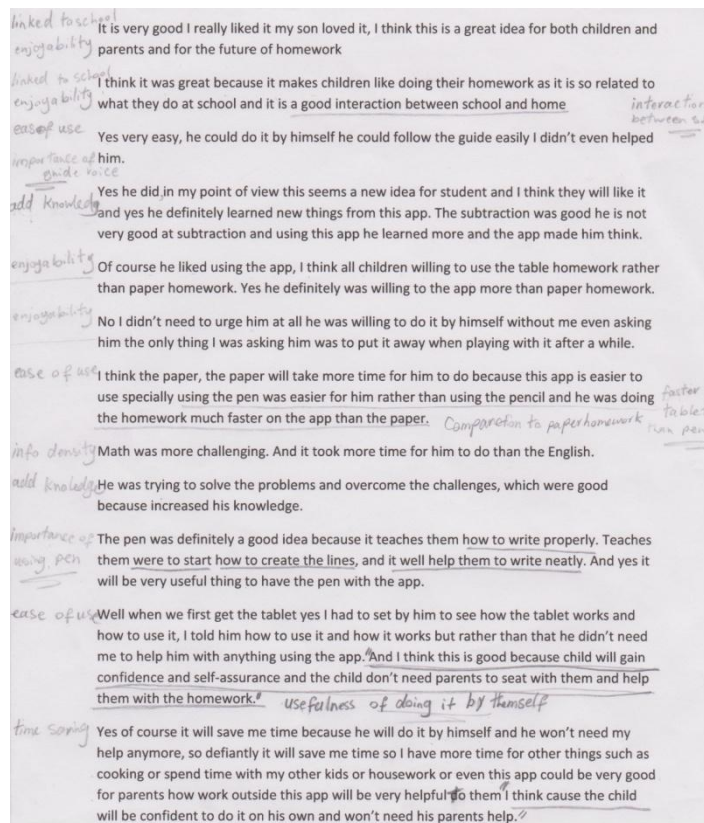 linked to school
It is very good I really liked it my son loved it, I think this is a great idea for both children and
enjoyability parents and for the future of homework
linked to school
I think it was great because it makes children like doing their homework as it is so related to
enjoyability what they do at school and it is a good interaction between school and home
interaction
between
ease of use
Yes very easy, he could do it by himself he could follow the guide easily I didn't even helped
importance of him.
guide voice
Yes he did in my point of view this seems a new idea for student and I think they will like it
add Knowledg and yes he definitely learned new things from this app. The subtraction was good he is not
very good at subtraction and using this app he learned more and the app made him think.
enjoyability Of course he liked using the app, I think all children willing to use the table homework rather
than paper homework. Yes he definitely was willing to the app more than paper homework.
enjoyability
No I didn't need to urge him at all he was willing to do it by himself without me even asking
him the only thing I was asking him was to put it away when playing with it after a while.
ease of use I think the paper, the paper will take more time for him to do because this app is easier to
use specially using the pen was easier for him rather than using the pencil and he was doing
the homework much faster on the app than the paper. Comparetion to paper homework
faster
tablet
than pen
info density Math was more challenging. And it took more time for him to do than the English.
add knoledge He was trying to solve the problems and overcome the challenges, which were good
because increased his knowledge.
importance of The pen was definitely a good idea because it teaches them how to write properly. Teaches
using pen them were to start how to create the lines, and it well help them to write neatly. And yes it
will be very useful thing to have the pen with the app.
ease of use Well when we first get the tablet yes I had to set by him to see how the tablet works and
how to use it, I told him how to use it and how it works but rather than that he didn't need
me to help him with anything using the app. "And I think this is good because child will gain
confidence and self-assurance and the child don't need parents to seat with them and help
them with the homework." usefulness of doing it by themself
time saving Yes of course it will save me time because he will do it by himself and he won't need my
help anymore, so defiantly it will save me time so I have more time for other things such as
cooking or spend time with my other kids or housework or even this app could be very good
for parents how work outside this app will be very helpful to them "I think cause the child
will be confident to do it on his own and won't need his parents help."